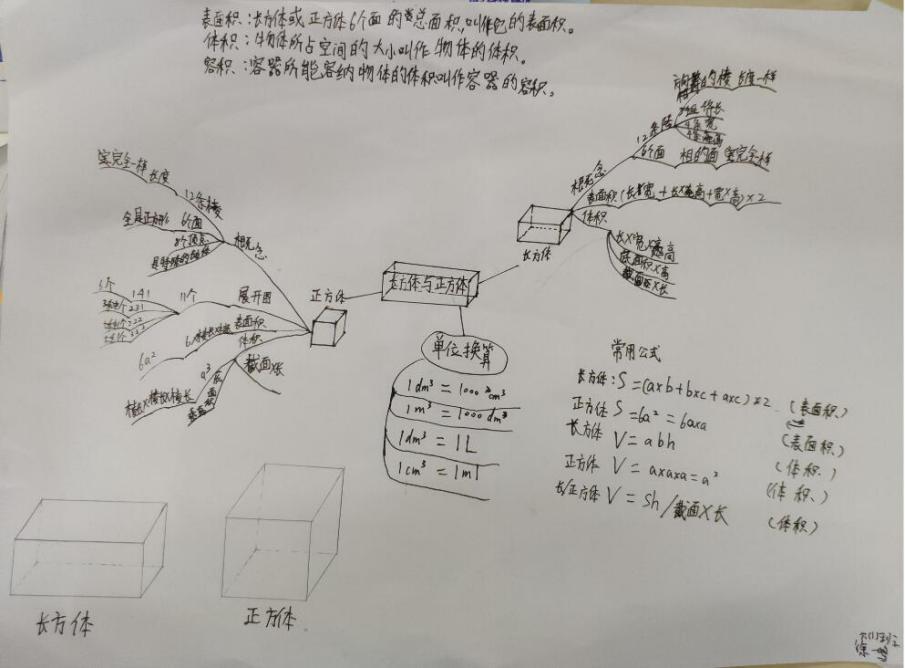 表面积：长方体或正方体6个面的总面积，叫作它的表面积。
体积：物体所占空间的大小叫作物体的体积。
容积：容器所能容纳物体的体积叫作容器的容积。
的棱 长度一样
12条棱
6个面 相的面 完全一样
概念
表面积（长×宽+长×高+宽×高）×2
体积
长×宽×高
底面积×高
截面×长
长方体
长方体与正方体
正方体
完全一样 长度
12条棱
全是正方形 6个面
8个顶点
概念
6个 141
231
222
11个
展开图
6a² 表面积
体积
截面×长
a³
棱长×棱长×棱长
单位换算
1dm³=1000cm³
1m³=1000dm³
1dm³=1L
1cm³=1ml
常用公式
长方体：S=(a×b+b×c+a×c)×2 （表面积）
正方体 S=6a²=6axa （表面积）
长方体 V=abh （体积）
正方体 V=axaxa=a² （体积）
长/正方体 V=Sh/截面×长 （体积）
长方体
正方体